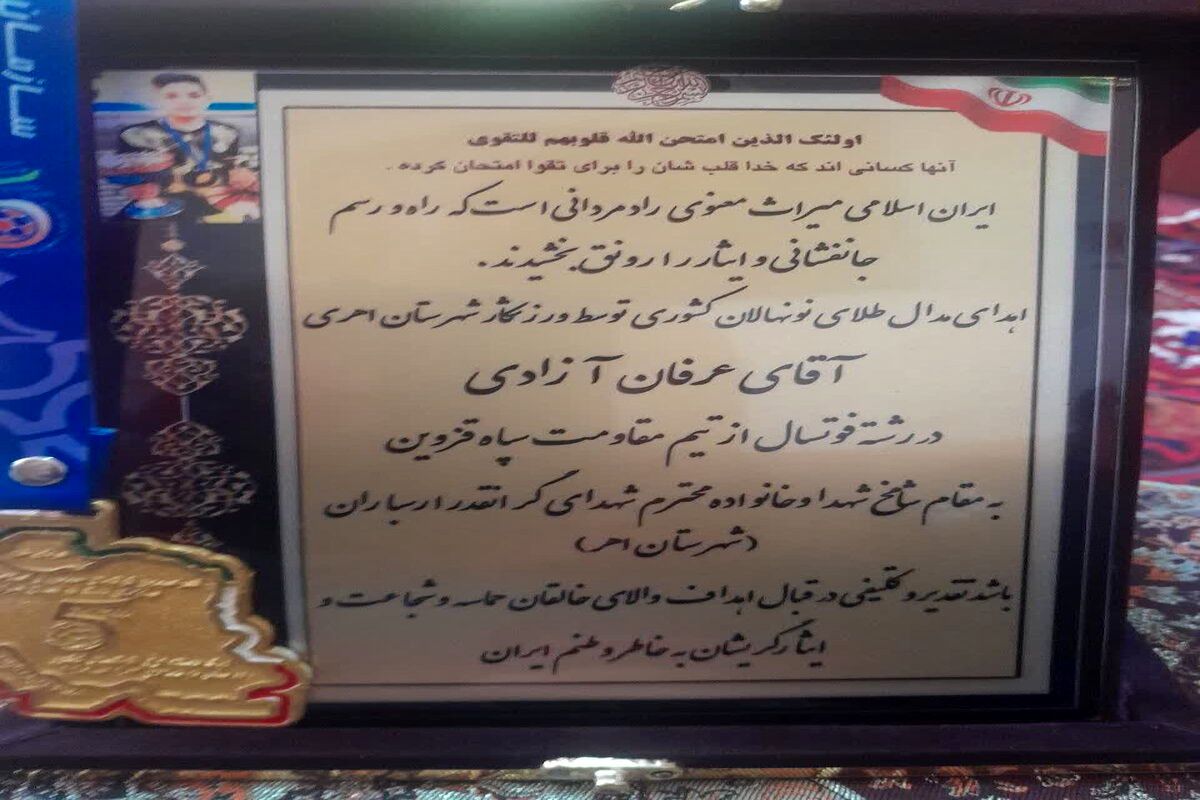 اولئک الذین امتحن الله قلوبهم للتقوی
آنها کسانی اند که خدا قلب شان را برای تقوا امتحان کرده .
ایران اسلامی میراث معنوی رادمردانی است که راه و رسم
جانفشانی و ایثار را رونق بخشیدند .
اهدای مدال طلای نونهالان کشوری توسط ورزشکار شهرستان اهری
آقای عرفان آزادی
در رشته فوتسال از تیم مقاومت سپاه قزوین
به مقام شامخ شهدا و خانواده محترم شهدای گرانقدر ارسباران
(شهرستان اهر)
باشد تقدیر و تکلیفی در قبال اهداف والای خالقان حماسه و شجاعت و
ایثارگریشان به خاطر وطنم ایران
سازمان
5